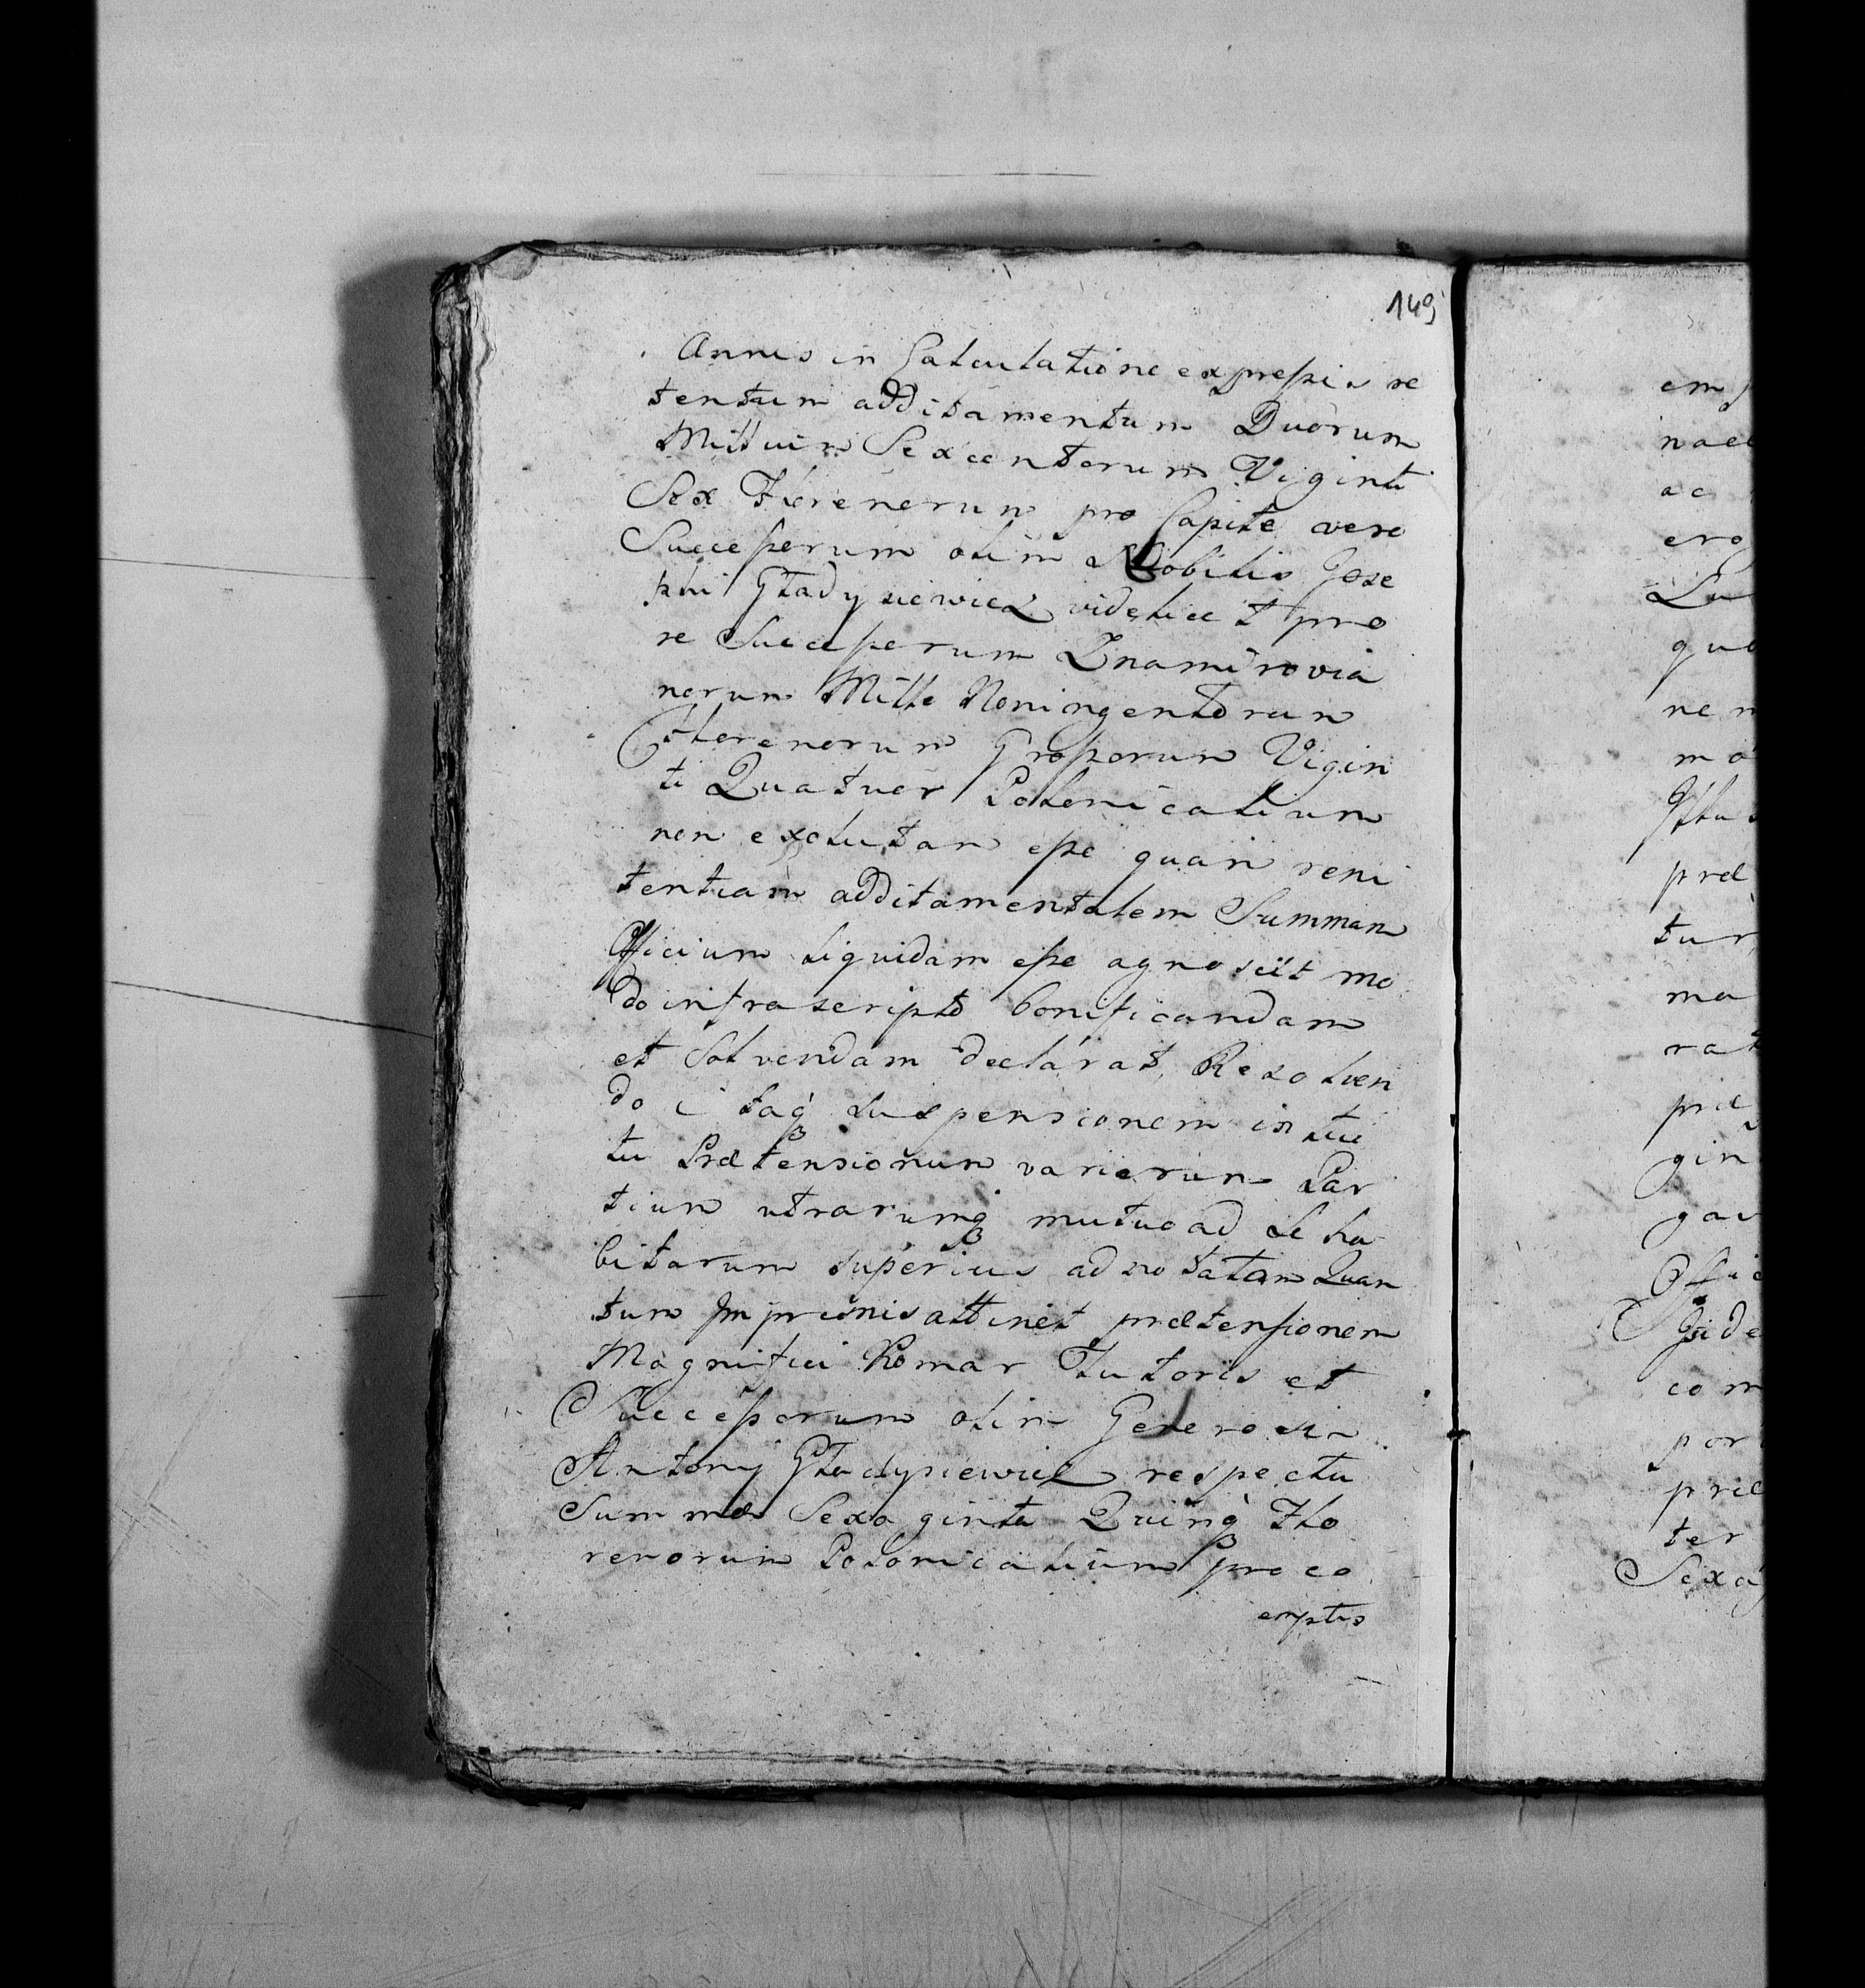 149
Annis in Calculatione expressis re
tentum additamentum Duorum
Millium Sexcentorum Viginti
Sex Florenorum pro Capite vero
Successorum olim Nobilis Jose
phi Gładysiewicz videlicet pro
re Successorum Znamirovia
norum Mille Noningentorum
Florenorum Grossorum Vigin
ti Quatuor Polonicalium
non exolutam esse quam reni
tentiam additamentalem Summam
Officium liquidam esse agnoscit mo
do infrascripto bonificandam
et Solvendam declarat, Resolven
do itaq suspensionem intui
tu Prætensionum variarum Par
tium utrarumq mutuo ad se ha
bitarum superius adnotatam Quan
tum Imprimis attinet prætensionem
Magnifici Komar Tutoris et
Successorum olim Generosi
Antonij Gładysiewicz respectu
Summæ Sexaginta Quinq Flo
renorum Polonicalium pro co
emptis
em
nae
ac
ero
Lu
quo
nem
mo
Istu
præ
tur
ma
rat
præ
gin
gau
Offic
Fide
com
por
præ
ter
Sexag